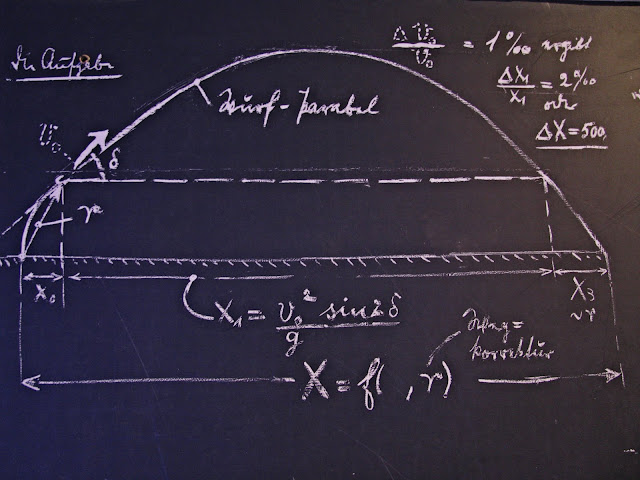 Die Aufgabe
Δv₀/v₀ = 1‰ ergibt
ΔX₁/X₁ = 2‰
oder
ΔX = 500
Wurf-Parabel
v₀
δ
r
X₀
X₁ = v₀² sin 2δ / g
X₃
~r
Weg=
korrektur
X = f( , r)